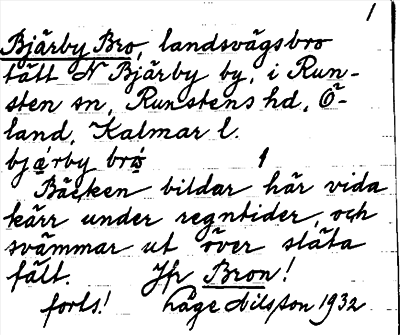 1
Bjärby Bro, landsvägsbro
tätt N Bjärby by, i Run-
sten sn, Runstens hd, Ö-
land, Kalmar l.
bjạ́rby brọ́
1
Bäcken bildar här vida
kärr under regntider, och
svämmar ut över släta
fält. Jfr Bron!
forts! Håge Nilsson 1932